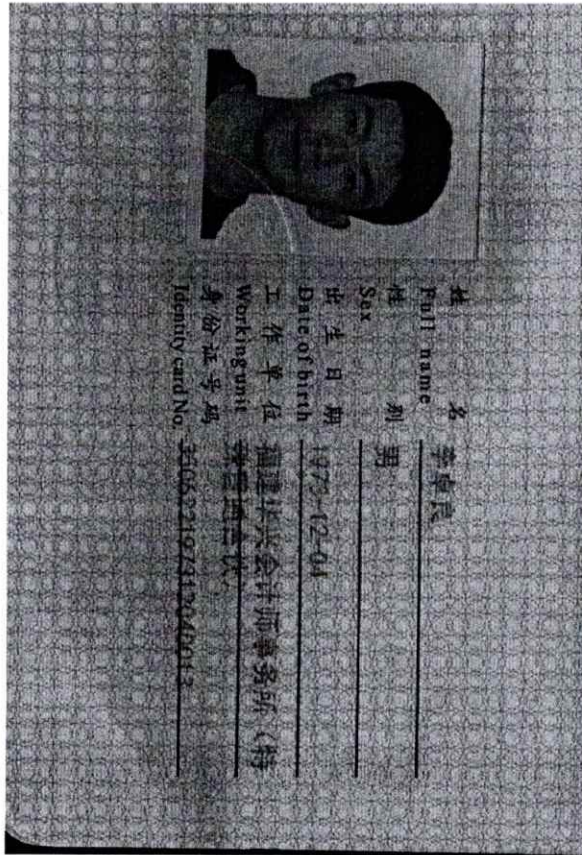 姓 名 李卓良
Full name
性 别 男
Sex
出生日期
Date of birth
工作单位 福建华兴会计师事务所（特
Working unit 殊普通合伙
身份证号码
Identity card No.